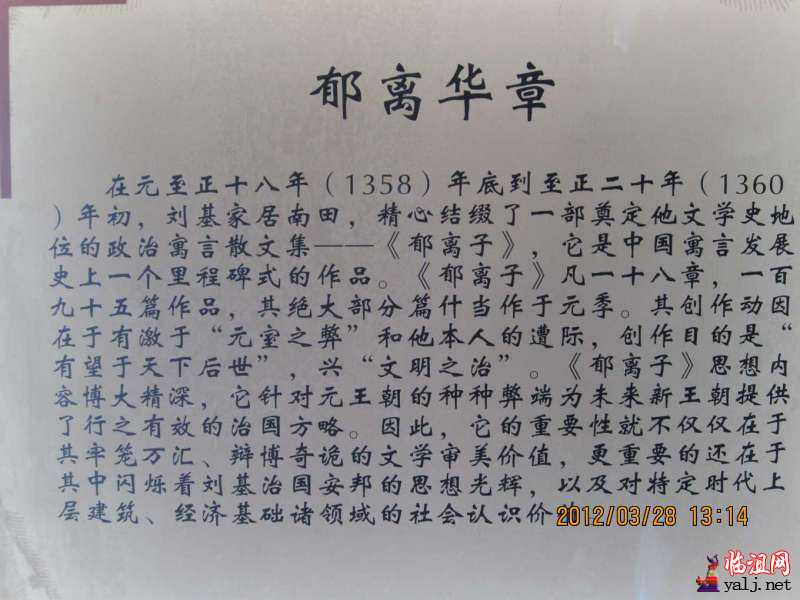 郁离华章
在元至正十八年（1358）年底到至正二十年（1360
）年初，刘基家居南田，精心结缀了一部奠定他文学史地
位的政治寓言散文集——《郁离子》，它是中国寓言发展
史上一个里程碑式的作品。《郁离子》凡一十八章，一百
九十五篇作品，其绝大部分篇什当作于元季。其创作动因
在于有激于“元室之弊”和他本人的遭际，创作目的是“
有望于天下后世”，兴“文明之治”。《郁离子》思想内
容博大精深，它针对元王朝的种种弊端为未来新王朝提供
了行之有效的治国方略。因此，它的重要性就不仅仅在于
其牢笼万汇、辩博奇诡的文学审美价值，更重要的还在于
其中闪烁着刘基治国安邦的思想光辉，以及对特定时代上
层建筑、经济基础诸领域的社会认识价
2012/03/28 13:14
临沮网
yalj.net